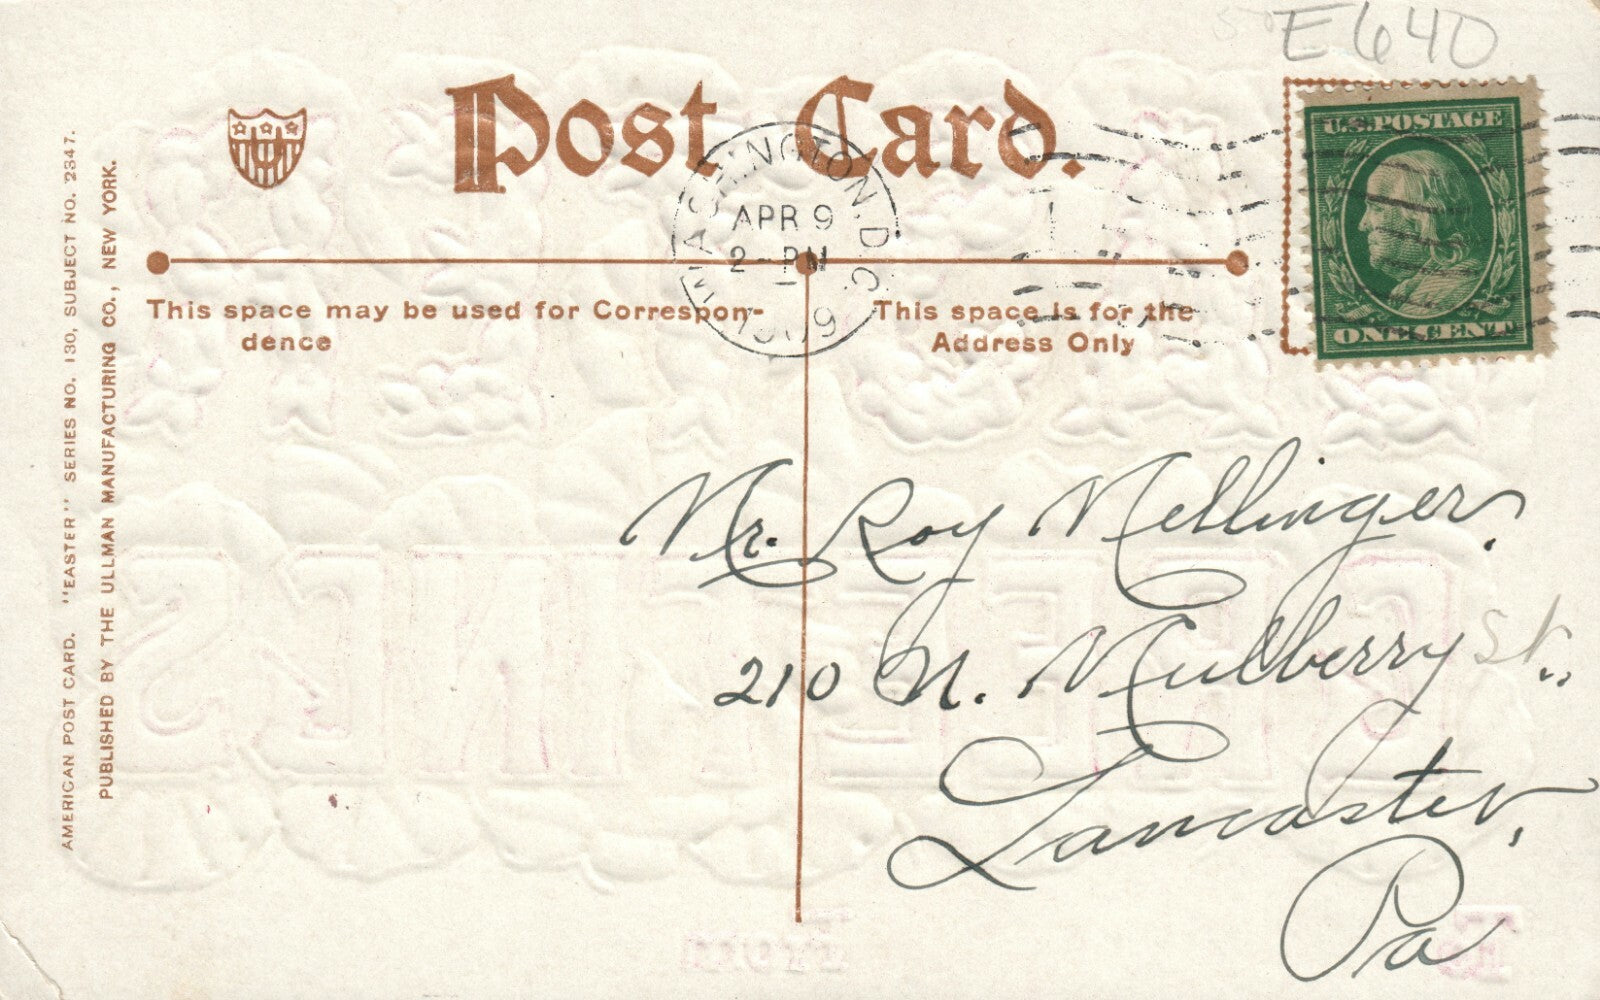 E640
Post Card.
U.S. POSTAGE
ONE CENT
WASHINGTON, D.C.
APR 9
2 - PM
1909
This space may be used for Correspon-
dence
This space is for the
Address Only
Mr. Roy Mellinger.
210 N. Mulberry St.,
Lancaster,
Pa
AMERICAN POST CARD. "EASTER" SERIES NO. 130, SUBJECT NO. 2347.
PUBLISHED BY THE ULLMAN MANUFACTURING CO., NEW YORK.